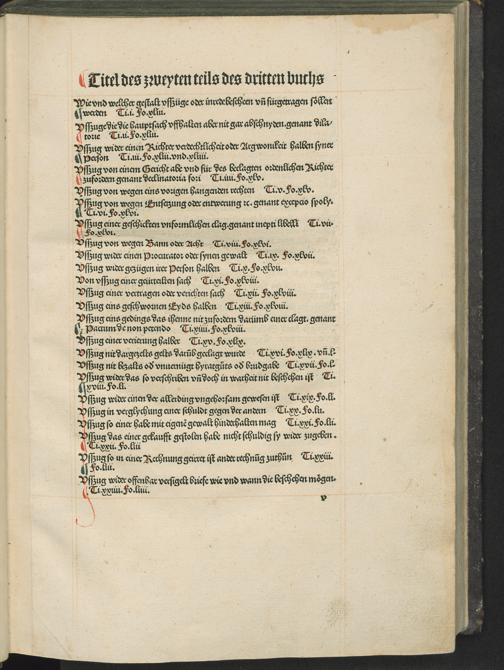 Titel des zweyten teils des dritten buchs
Wie vnd welcher gestalt vsszüge oder inrede beschehen vñ fürgetragen söllent
werden Ti.i. Fo.xliii.
Vsszuge die die hauptsach vffhalten aber nit gar abschnyden. genant dila-
torie Ti.ii. Fo.xliii.
Vsszug wider einen Richter verdechtlicheit oder Argwonikeit halben syner
person Ti.iii. Fo.xliii. vnd .xliiii.
Vsszug von einem Gericht abe vnd für des beclagten ordenlichen Richter
zufordern genant declinatoria fori Ti.iiii. Fo.xlv.
Vsszug von wegen eins vorigen hangenden rechten Ti.v. Fo.xlv.
Vsszug von wegen Entsezung oder entwerung ꝛc. genant excepcio spoly.
Ti.vi. Fo.xlvi.
Vsszug einer geschickten vnformlichen clag. genant inepti libelli Ti.vii.
Fo.xlvi.
Vsszug von wegen Bann oder Acht Ti.viii. Fo.xlvi.
Vsszug wider einen Procurator oder synen gewalt Ti.ix. Fo.xlvii.
Vsszug wider gezügen irer Person halben Ti.x. Fo.xlvii.
Von vsszug einer geurteilten sach Ti.xi. Fo.xlviii.
Vsszug einer vertragen oder verichten sach Ti.xii. Fo.xlviii.
Vsszug eins geschwornen Eyds halben Ti.xiii. Fo.xlviii.
Vsszug eins gedings das ihenne nit zufordern darumb einer clagt. genant
Pactum de non petendo Ti.xiiii. Fo.xlviii.
Vsszug einer verierung halber Ti.xv. Fo.xlix.
Vsszug nit dargezelts gelts darūb geclagt wurde Ti.xvi. Fo.xlix. vñ.l.
Vsszug nit bezalts od vnuernügt hyratgūts od brudgabe Ti.xvii. Fo.l.
Vsszug wider das so verschriben vñ doch in warheit nit beschehen ist Ti.
xviii. Fo.li.
Vsszug wider einen der allerding vngehorsam gewesen ist Ti.xix. Fo.li.
Vsszug in verglychung einer schuldt gegen der andern Ti.xx. Fo.lii.
Vsszug so einer habe mit eigenē gewalt hinderhalten mag Ti.xxi. Fo.lii.
Vsszug das einer gekaufft gestolen habe nicht schuldig sy wider zugeben.
Ti.xxii. Fo.liii
Vsszug so in einer Rechnung geirret ist ander rechnūg zuthūn Ti.xxiii.
Fo.liii.
Vsszug wider offenbar versigelt briefe wie vnd wann die beschehen mögen.
Ti.xxiiii. Fo.liiii.
v